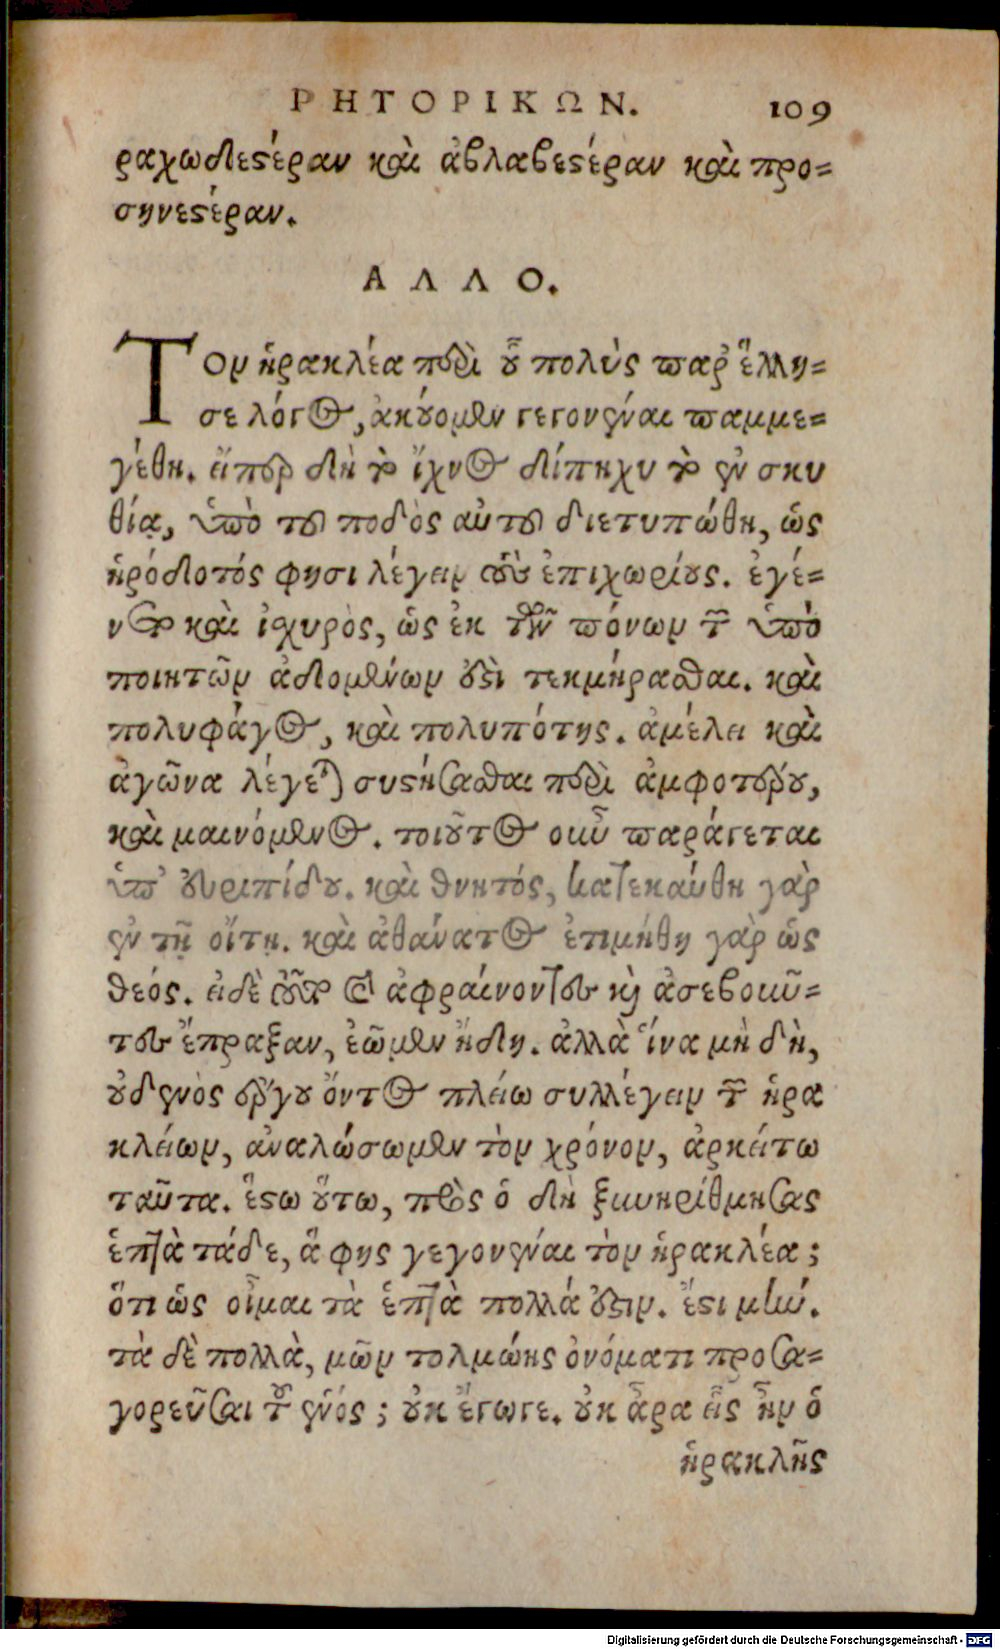 ΡΗΤΟΡΙΚΩΝ. 109
ραχωδεστέραν καὶ ἀβλαβεστέραν καὶ προ-
σηνεστέραν.
ΑΛΛΟ.
Τὸν ἡρακλέα περὶ οὗ πολὺς παρ' ἕλλη-
σι λόγος, ἀκούομεν γεγονέναι παμμε-
γέθη. εἴπερ δὴ τὸ ἴχνος δίπηχυ τὸ ἐν σκυ
θίᾳ, ὑπὸ τοῦ ποδὸς αὐτοῦ διετυπώθη, ὡς
ἡρόδοτός φησι λέγειν τοὺς ἐπιχωρίους. ἐγέ-
νετο καὶ ἰσχυρὸς, ὡς ἐκ τῶν πόνων τῶν ὑπὸ
ποιητῶν ἀδομένων ἐστὶ τεκμήρασθαι. καὶ
πολυφάγος, καὶ πολυπότης. ἀμέλει καὶ
ἀγῶνα λέγεται συστήσασθαι περὶ ἀμφοτέρου,
καὶ μαινόμενος. τοιοῦτος οὖν παράγεται
ὑπ' εὐριπίδου. καὶ θνητός, κατεκαύθη γὰρ
ἐν τῇ οἴτῃ. καὶ ἀθάνατος ἐτιμήθη γὰρ ὡς
θεός. εἰ δὲ τοῦτο οἱ ἀφραίνοντες καὶ ἀσεβοῦν-
τες ἔπραξαν, ἐῶμεν ἤδη. ἀλλὰ ἵνα μὴ δὴ,
οὐδενὸς ἔργου ὄντος πλείω συλλέγειν τῶν ἡρα
κλείων, ἀναλώσωμεν τὸν χρόνον, ἀρκείτω
ταῦτα. ἔστω οὕτω, πρὸς ὁ δὴ ξυνηρίθμησας
ἑπτὰ τάδε, ἃ φῂς γεγονέναι τὸν ἡρακλέα;
ὅτι ὡς οἶμαι τὰ ἑπτὰ πολλά ἐστιν. ἔστι μήν.
τὰ δὲ πολλὰ, μῶν τολμώης ὀνόματι προσα-
γορεῦσαι τοῦ ἑνός; οὐκ ἔγωγε. οὐκ ἆρα εἷς ἦν ὁ
ἡρακλῆς
Digitalisierung gefördert durch die Deutsche Forschungsgemeinschaft - DFG